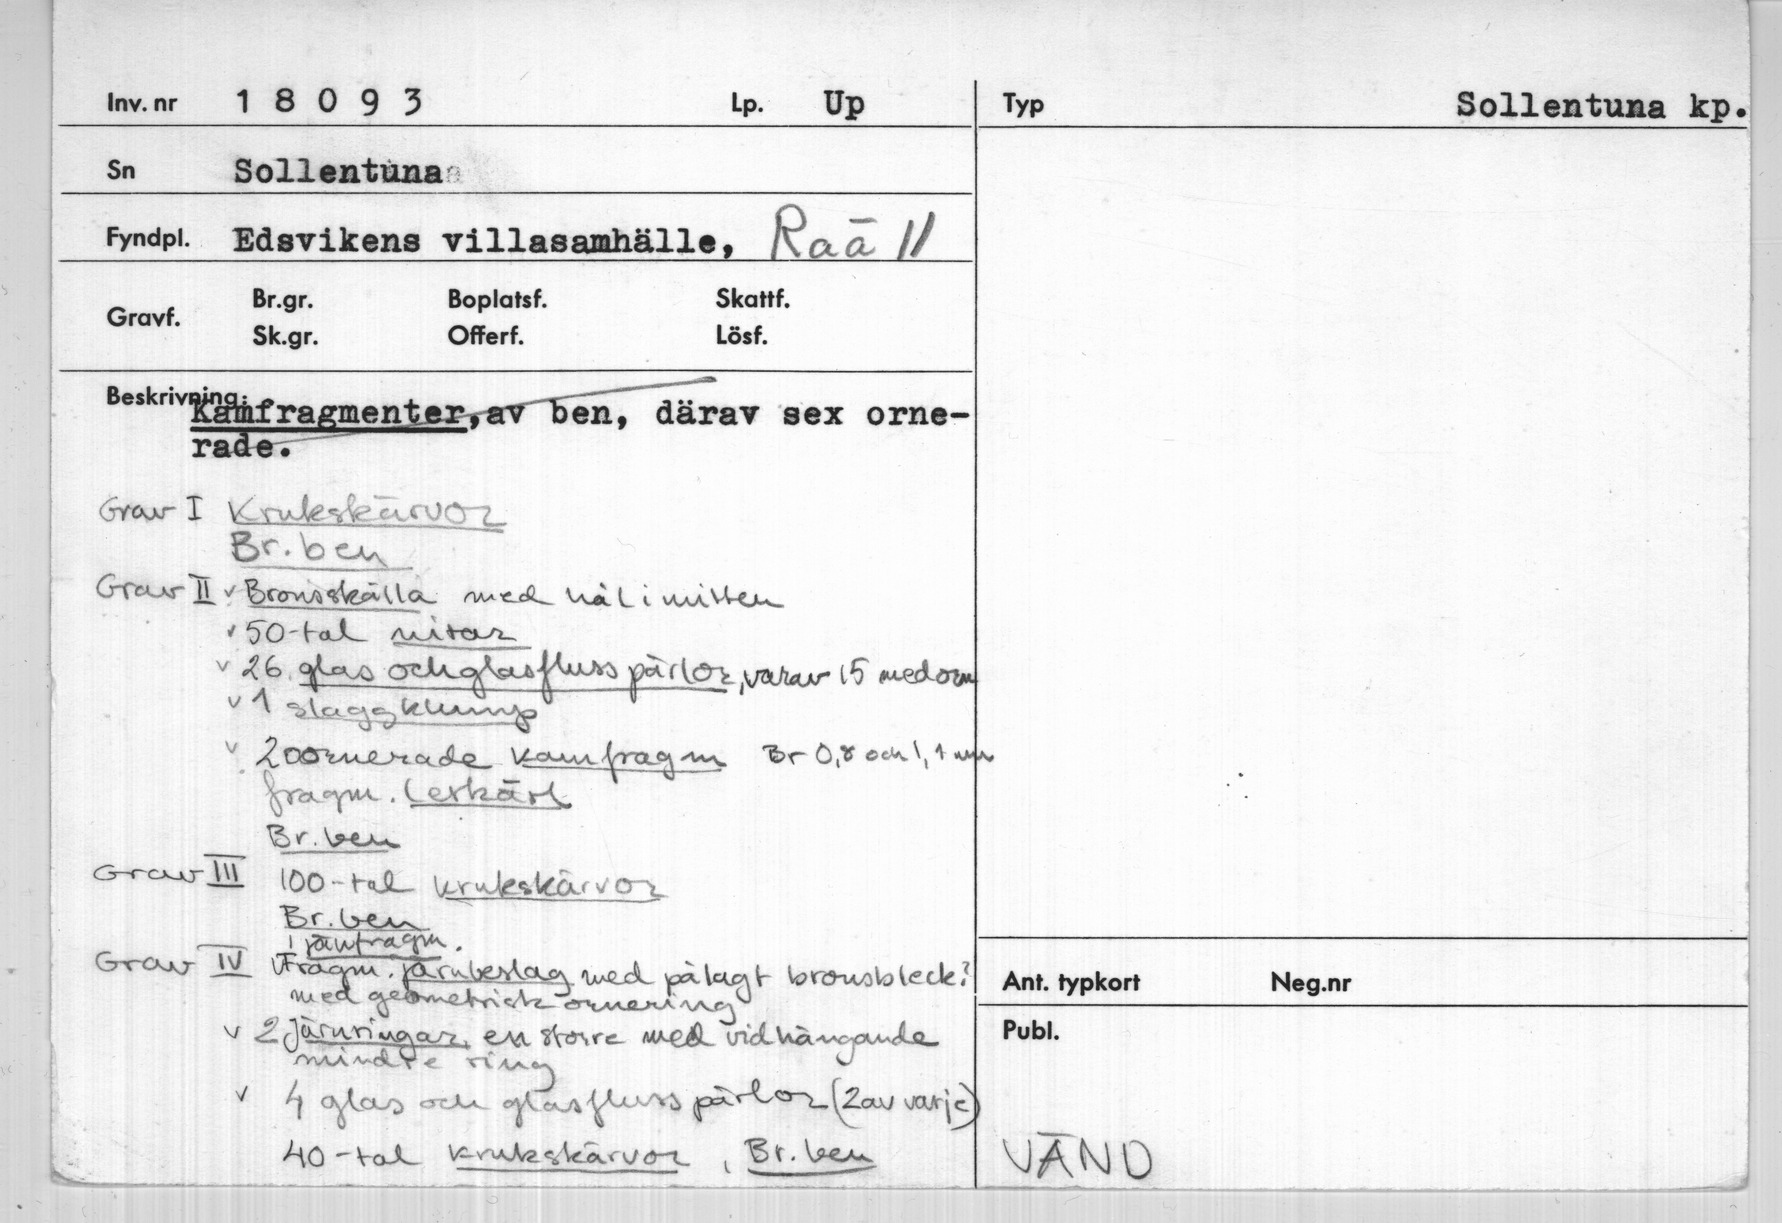 Inv. nr 18093 Lp. Up
Typ Sollentuna kp.
Sn Sollentuna
Fyndpl. Edsvikens villasamhälle, Raä 11
Gravf. Br.gr. Boplatsf. Skattf.
Sk.gr. Offerf. Lösf.
Beskrivning:
Kamfragmenter, av ben, därav sex orne-
rade.
Grav I Krukskärvor
Br. ben
Grav II v Bronsskålla med hål i mitten
v 50-tal nitar
v 26 glas och glasfluss pärlor, varav 15 med orn
v 1 slaggklump
v 2 oornerade kamfragm Br 0,8 och 1,1 mm
fragm. lerkärl
Br. ben
Grav III 100-tal krukskärvor
Br. ben
1 järnfragm.
Grav IV v Fragm. järnbeslag med pålagt bronsbleck?
med geometrisk ornering
v 2 Järnringar, en större med vidhängande
mindre ring
v 4 glas och glasfluss pärlor (2 av varje)
40-tal krukskärvor, Br. ben
Ant. typkort Neg.nr
Publ.
VÄND